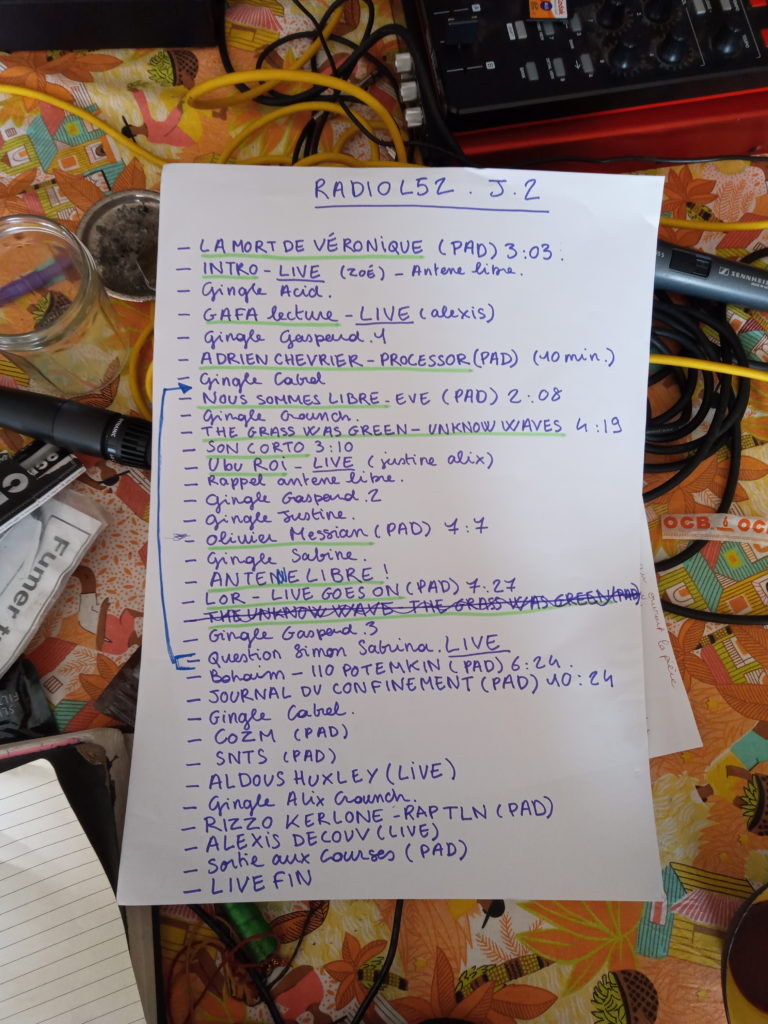 RADIO L52 . J.2
– LA MORT DE VÉRONIQUE (PAD) 3:03.
– INTRO – LIVE (zoé) – Antene libre.
– Gingle Acid.
– GAFA lecture – LIVE (alexis)
– Gingle Gaspend.4
– ADRIEN CHEVRIER – PROCESSOR (PAD) (10 min.)
– Gingle Cabrel
– NOUS SOMMES LIBRE – EVE (PAD) 2:08
– Gingle Crounch.
– THE GRASS WAS GREEN – UNKNOW WAVES 4:19
– SON CORTO 3:10
– Ubu Roi – LIVE (justine alix)
– Rappel antene libre.
– Gingle Gaspend.2
– Gingle Justine.
– Olivier Messian (PAD) 7:7
– Gingle Sabine.
– ANTENNE LIBRE !
– LOR – LIVE GOES ON (PAD) 7:27
– THE UNKNOW WAVE – THE GRASS WAS GREEN (PAD)
– Gingle Gaspend.3
– Question Simon Sabrina. LIVE
– Bohaim – 110 POTEMKIN (PAD) 6:24.
– JOURNAL DU CONFINEMENT (PAD) 10:24
– Gingle Cabrel.
– COZM (PAD)
– SNTS (PAD)
– ALDOUS HUXLEY (LIVE)
– Gingle Alix Crounch.
– RIZZO KERLONE – RAP TLN (PAD)
– ALEXIS DECOUV (LIVE)
– Sortie aux Courses (PAD)
– LIVE FIN
SENNHEISER
OCB
Fumer t